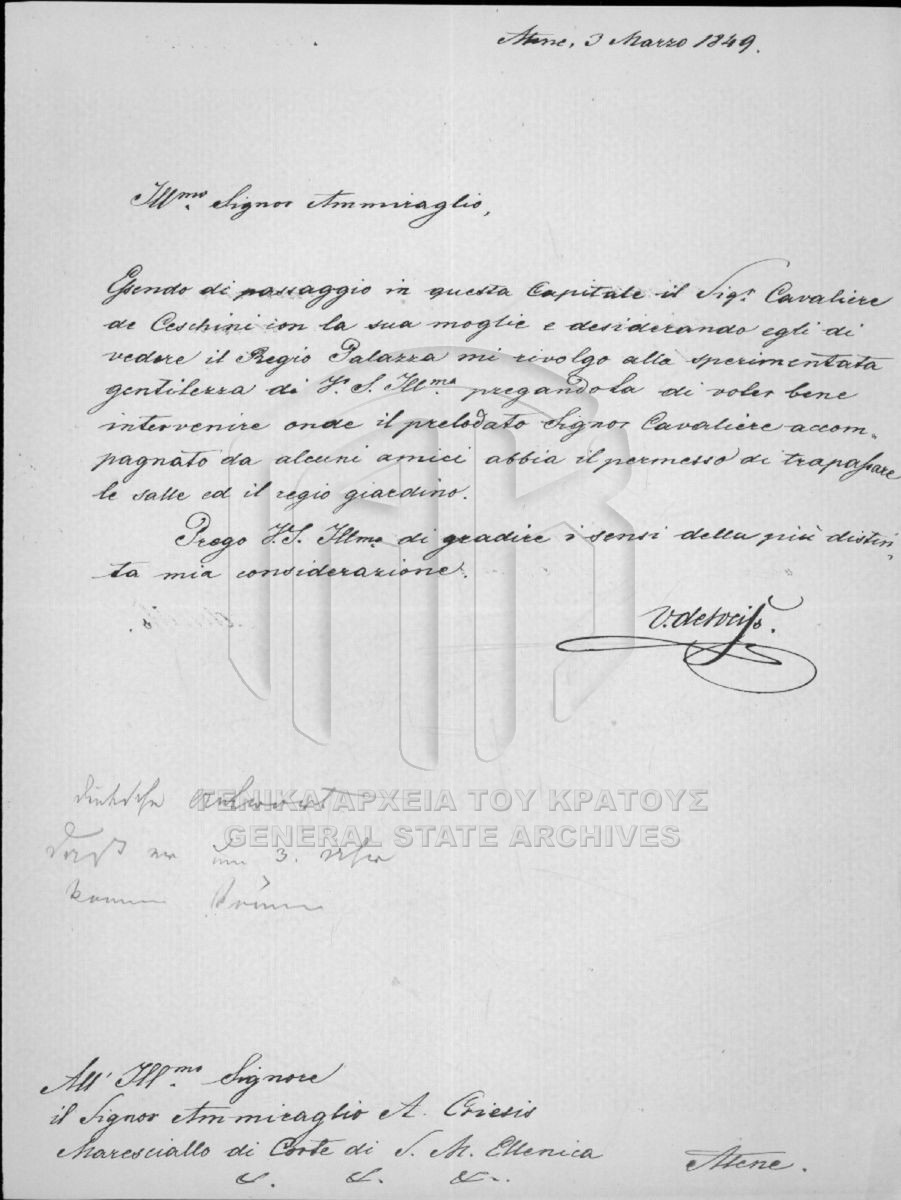 Atene, 3 Marzo 1849.
Ill.mo Signor Ammiraglio,
Essendo di passaggio in questa Capitale il Sig.r Cavaliere
de Ceschini con la sua moglie e desiderando egli di
vedere il Regio Palazzo mi rivolgo alla sperimentata
gentilezza di V. S. Ill.ma pregandola di voler bene
intervenire onde il prelodato Signor Cavaliere accom„
pagnato da alcuni amici abbia il permesso di trapassare
le salle ed il regio giardino.
Prego V. S. Illma di gradire i sensi della più distin„
ta mia considerazione.
ΓΕΝΙΚΑ ΑΡΧΕΙΑ ΤΟΥ ΚΡΑΤΟΥΣ
GENERAL STATE ARCHIVES
deutsche Antwort
daß er um 3. Uhr
kommen könne
All' Ill.mo Signore
il Signor Ammiraglio A. Criesis
Maresciallo di Corte di S. M. Ellenica
&. &. &.. Atene.